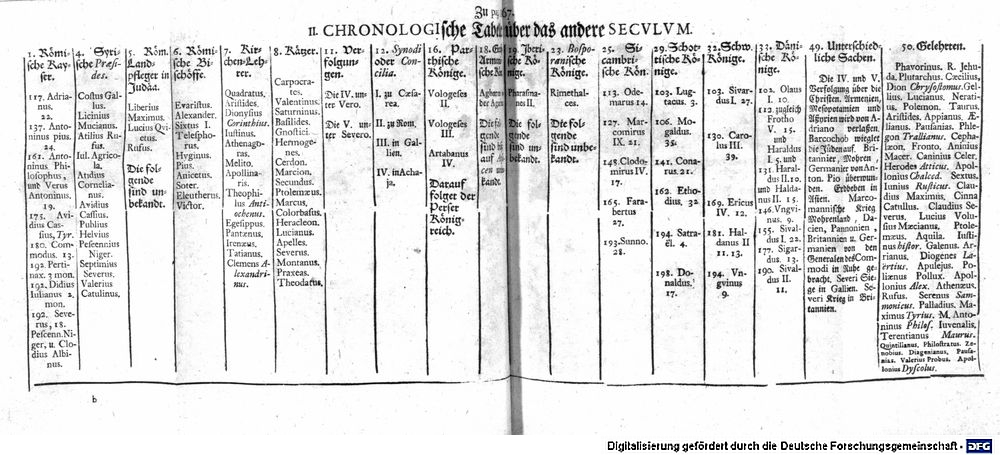 Zu pag. 67.
II. CHRONOLOGIsche Tabel über das andere SECVLVM.
1. Römi-
sche Kay-
ser.
117. Adria-
nus.
22.
137. Anto-
ninus pius.
24.
161. Anto-
ninus Phi-
losophus,
und Verus
Antoninus.
19.
175. Avi-
dius Cas-
sius, Tyr.
180. Com-
modus. 13.
192. Perti-
nax. 3 mon.
192. Didius
Iulianus 2.
mon.
192. Seve-
rus, 18.
Pescenn. Ni-
ger, u. Clo-
dius Albi-
nus.
4. Syri-
sche Præsi-
des.
Costus Gal-
lus.
Licinius
Mucianus.
Atilius Ru-
fus.
Iul. Agrico-
la.
Atidius
Cornelia-
nus.
Avidius
Cassius.
Publius
Helvius
Pescennius
Niger.
Septimius
Severus.
Valerius
Catulinus.
5. Röm.
Land-
pfleger in
Judäa.
Liberius
Maximus.
Lucius Qui-
etus.
Rufus.
Die fol-
gende
sind un-
bekandt.
6. Römi-
sche Bi-
schöffe.
Evaristus.
Alexander.
Sixtus I.
Telespho-
rus.
Hyginus.
Pius.
Anicetus.
Soter.
Eleutherus.
Victor.
7. Kir-
chen-Leh-
rer.
Quadratus,
Aristides.
Dionysius
Corinthius.
Iustinus.
Athenago-
ras.
Melito.
Apollina-
ris.
Theophi-
lus Anti-
ochenus.
Egesippus.
Pantænus,
Irenæus.
Tatianus.
Clemens A-
lexandri-
nus.
8. Kätzer.
Carpocra-
tes.
Valentinus.
Saturninus.
Basilides.
Gnostici.
Hermoge-
nes.
Cerdon.
Marcion.
Secundus.
Ptolemæus.
Marcus,
Colorbasus.
Heracleon.
Lucianus.
Apelles.
Severus.
Montanus.
Praxeas.
Theodatus.
11. Ver-
folgun-
gen.
Die IV. un-
ter Vero.
Die V. un-
ter Severo.
12. Synodi
oder Con-
cilia.
I. zu Cæsa-
rea.
II. zu Rom.
III. in Gal-
lien.
IV. in Acha-
ja.
16. Par-
thische
Könige.
Vologeses
II.
Vologeses
III.
Artabanus
IV.
Darauf
folger der
Perser
König-
reich.
19. Iberi-
sche Kö-
nige.
Pharasma-
nes II.
Die fol-
gende
sind un-
bekandt.
23. Bospo-
ranische
Könige.
Rimethal-
ces.
Die fol-
gende
sind unbe-
kandt.
25. Si-
cambri-
sche Kön.
113. Ode-
marus 14.
127. Mar-
comirus
IX. 21.
148. Clodo-
mirus IV.
17.
165. Fara-
bertus
27.
193. Sunno.
28.
29. Schot-
tische Kö-
nige.
103. Lug-
tacus. 3.
106. Mo-
galdus.
35.
141. Cona-
rus. 21.
162. Etho-
dius, 32
194. Satra-
ël. 4.
198. Do-
naldus.
17.
32. Schw.
Könige.
103. Sivar-
dus I. 27.
130. Caro-
lus III.
39.
169. Ericus
IV. 12.
181. Hal-
danus II
11. 13.
194. Vn-
gvinus
9.
33. Däni-
sche Kö-
nige.
102. Olaus
I. 10.
112. zugleich
Frotho
V. 15.
und
Haraldus
I. 5. und
131. Haral-
dus II. 10.
und Halda-
nus II. 15.
146. Vngvi-
nus. 9.
155. Sival-
dus I. 22.
177. Sigar-
dus. 13.
190. Sival-
dus II.
11.
49. Unterschied-
liche Sachen.
Die IV. und V.
Verfolgung über die
Christen. Armenien,
Mesopotamien und
Assyrien wird von A-
driano verlassen.
Barcochab wieglet
die Juden auf. Bri-
tannier, Mohren,
Germanier von An-
ton. Pio überwun-
den. Erdbeben in
Asien. Marco-
mannische Krieg.
Mohrenland, Da-
cien, Pannonien,
Britannien u. Ger-
manien von den
Generalen des Com-
modi in Ruhe ge-
bracht. Severi Sie-
ge in Gallien. Se-
veri Krieg in Bri-
tannien.
50. Gelehrten.
Phavorinus. R. Jehu-
da. Plutarchus. Cæcilius,
Dion Chrysostomus. Gel-
lius. Lucianus. Nerati-
us. Polemon. Taurus.
Aristides. Appianus. Æ-
lianus. Pausanias. Phle-
gon Trallianus. Cepha-
læon. Fronto. Aninius
Macer. Caninius Celer.
Herodes Atticus. Apol-
lonius Chalced. Sextus.
Iunius Rusticus. Clau-
dius Maximus, Cinna
Catullus. Claudius Se-
verus. Lucius Volu-
sius Mæcianus. Ptole-
mæus. Aquila. Iusti-
nus histor. Galenus. Ar-
rianus. Diogenes La-
ërtius. Apulejus. Po-
liænus Pollux. Apol-
lonius Alex. Athenæus.
Rufus. Serenus Sam-
monicus. Palladius. Ma-
ximus Tyrius. M. Anto-
ninus Philos. Iuvenalis.
Terentianus Maurus.
Quintilianus. Philostratus. Ze-
nobius. Diogenianus, Pausa-
nias. Valerius Probus. Apol-
lonius Dyscolus.
b
Digitalisierung gefördert durch die Deutsche Forschungsgemeinschaft - DFG